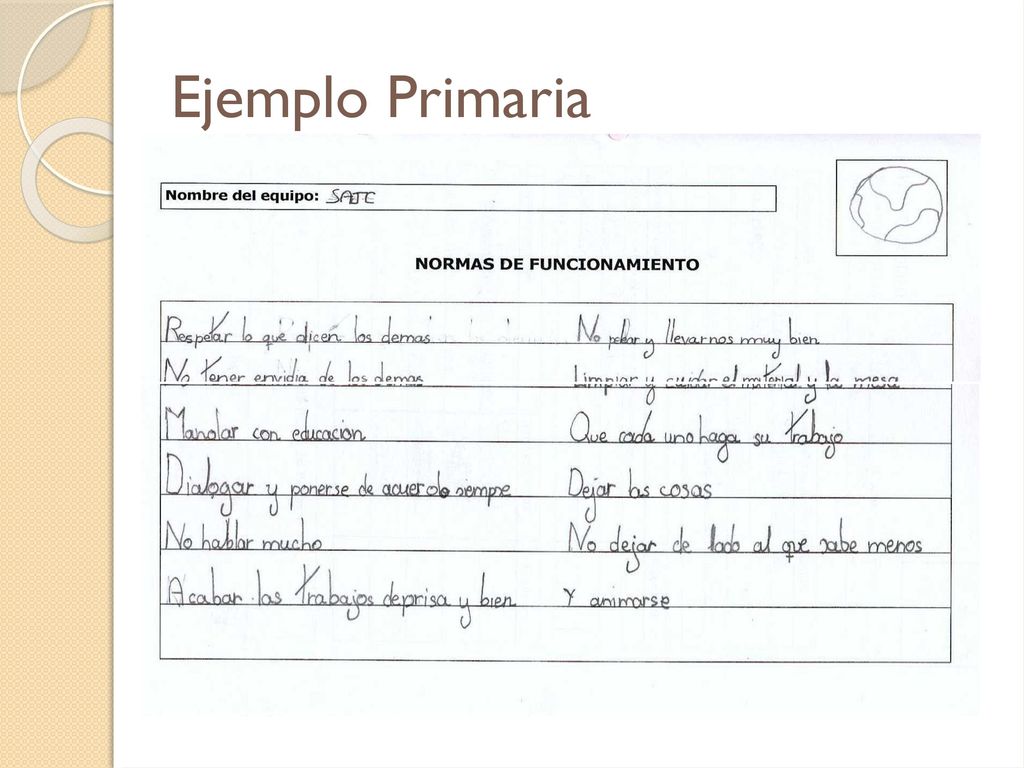 Ejemplo Primaria
Nombre del equipo:
NORMAS DE FUNCIONAMIENTO
Respetar lo que dicen los demas No pelear y llevarnos muy bien
No tener envidia de los demas Limpiar y cuidar el material y la mesa
Mandar con educacion Que cada uno haga su trabajo
Dialogar y ponerse de acuerdo siempre Dejar las cosas
No hablar mucho No dejar de lado al que sabe menos
Acabar las trabajos deprisa y bien Y animarse